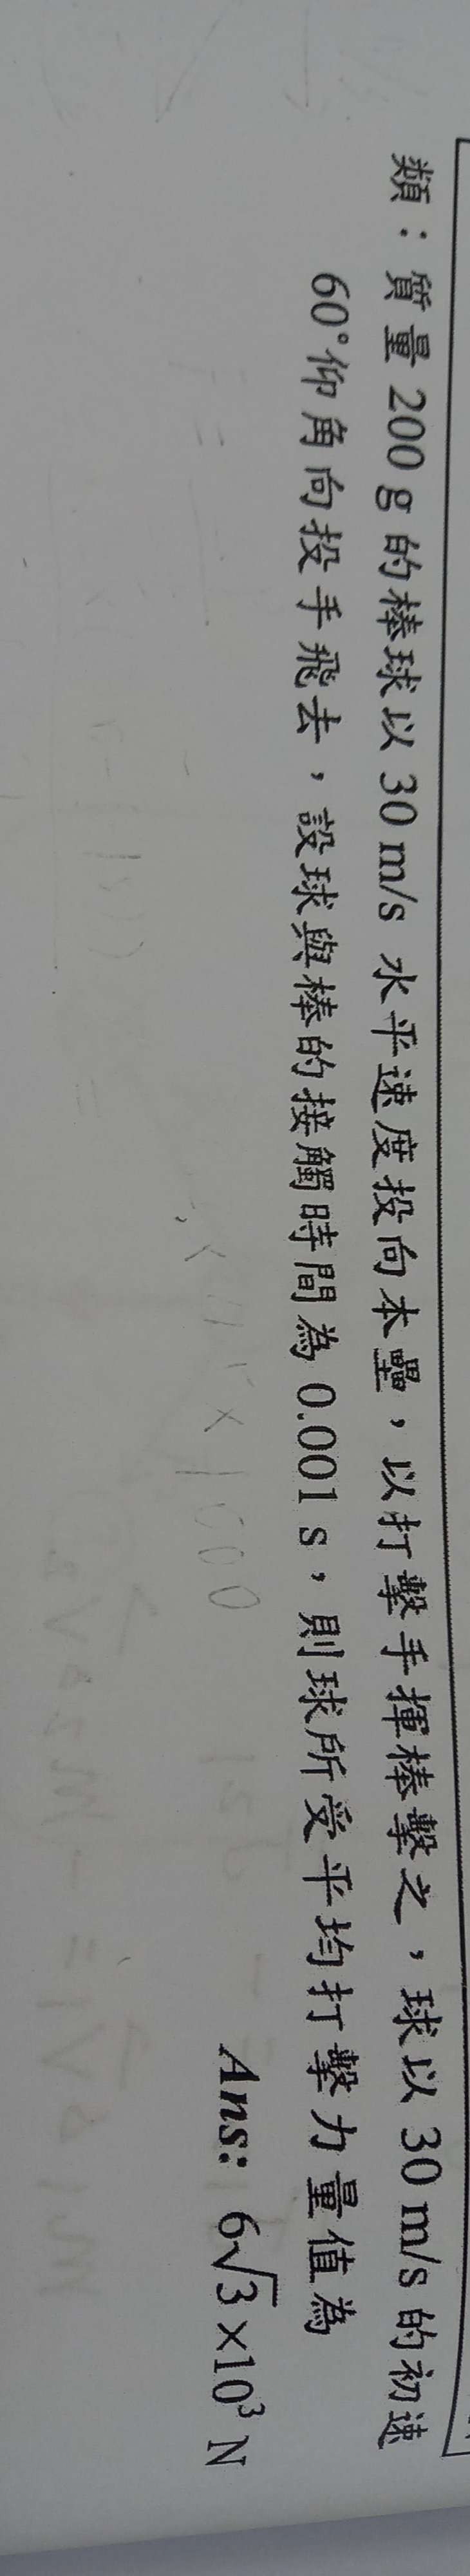 類：質量 200 g 的棒球以 30 m/s 水平速度投向本壘，以打擊手揮棒擊之，球以 30 m/s 的初速
60°仰角向投手飛去，設球與棒的接觸時間為 0.001 s，則球所受平均打擊力量值為
Ans: 6√3 ×10³ N